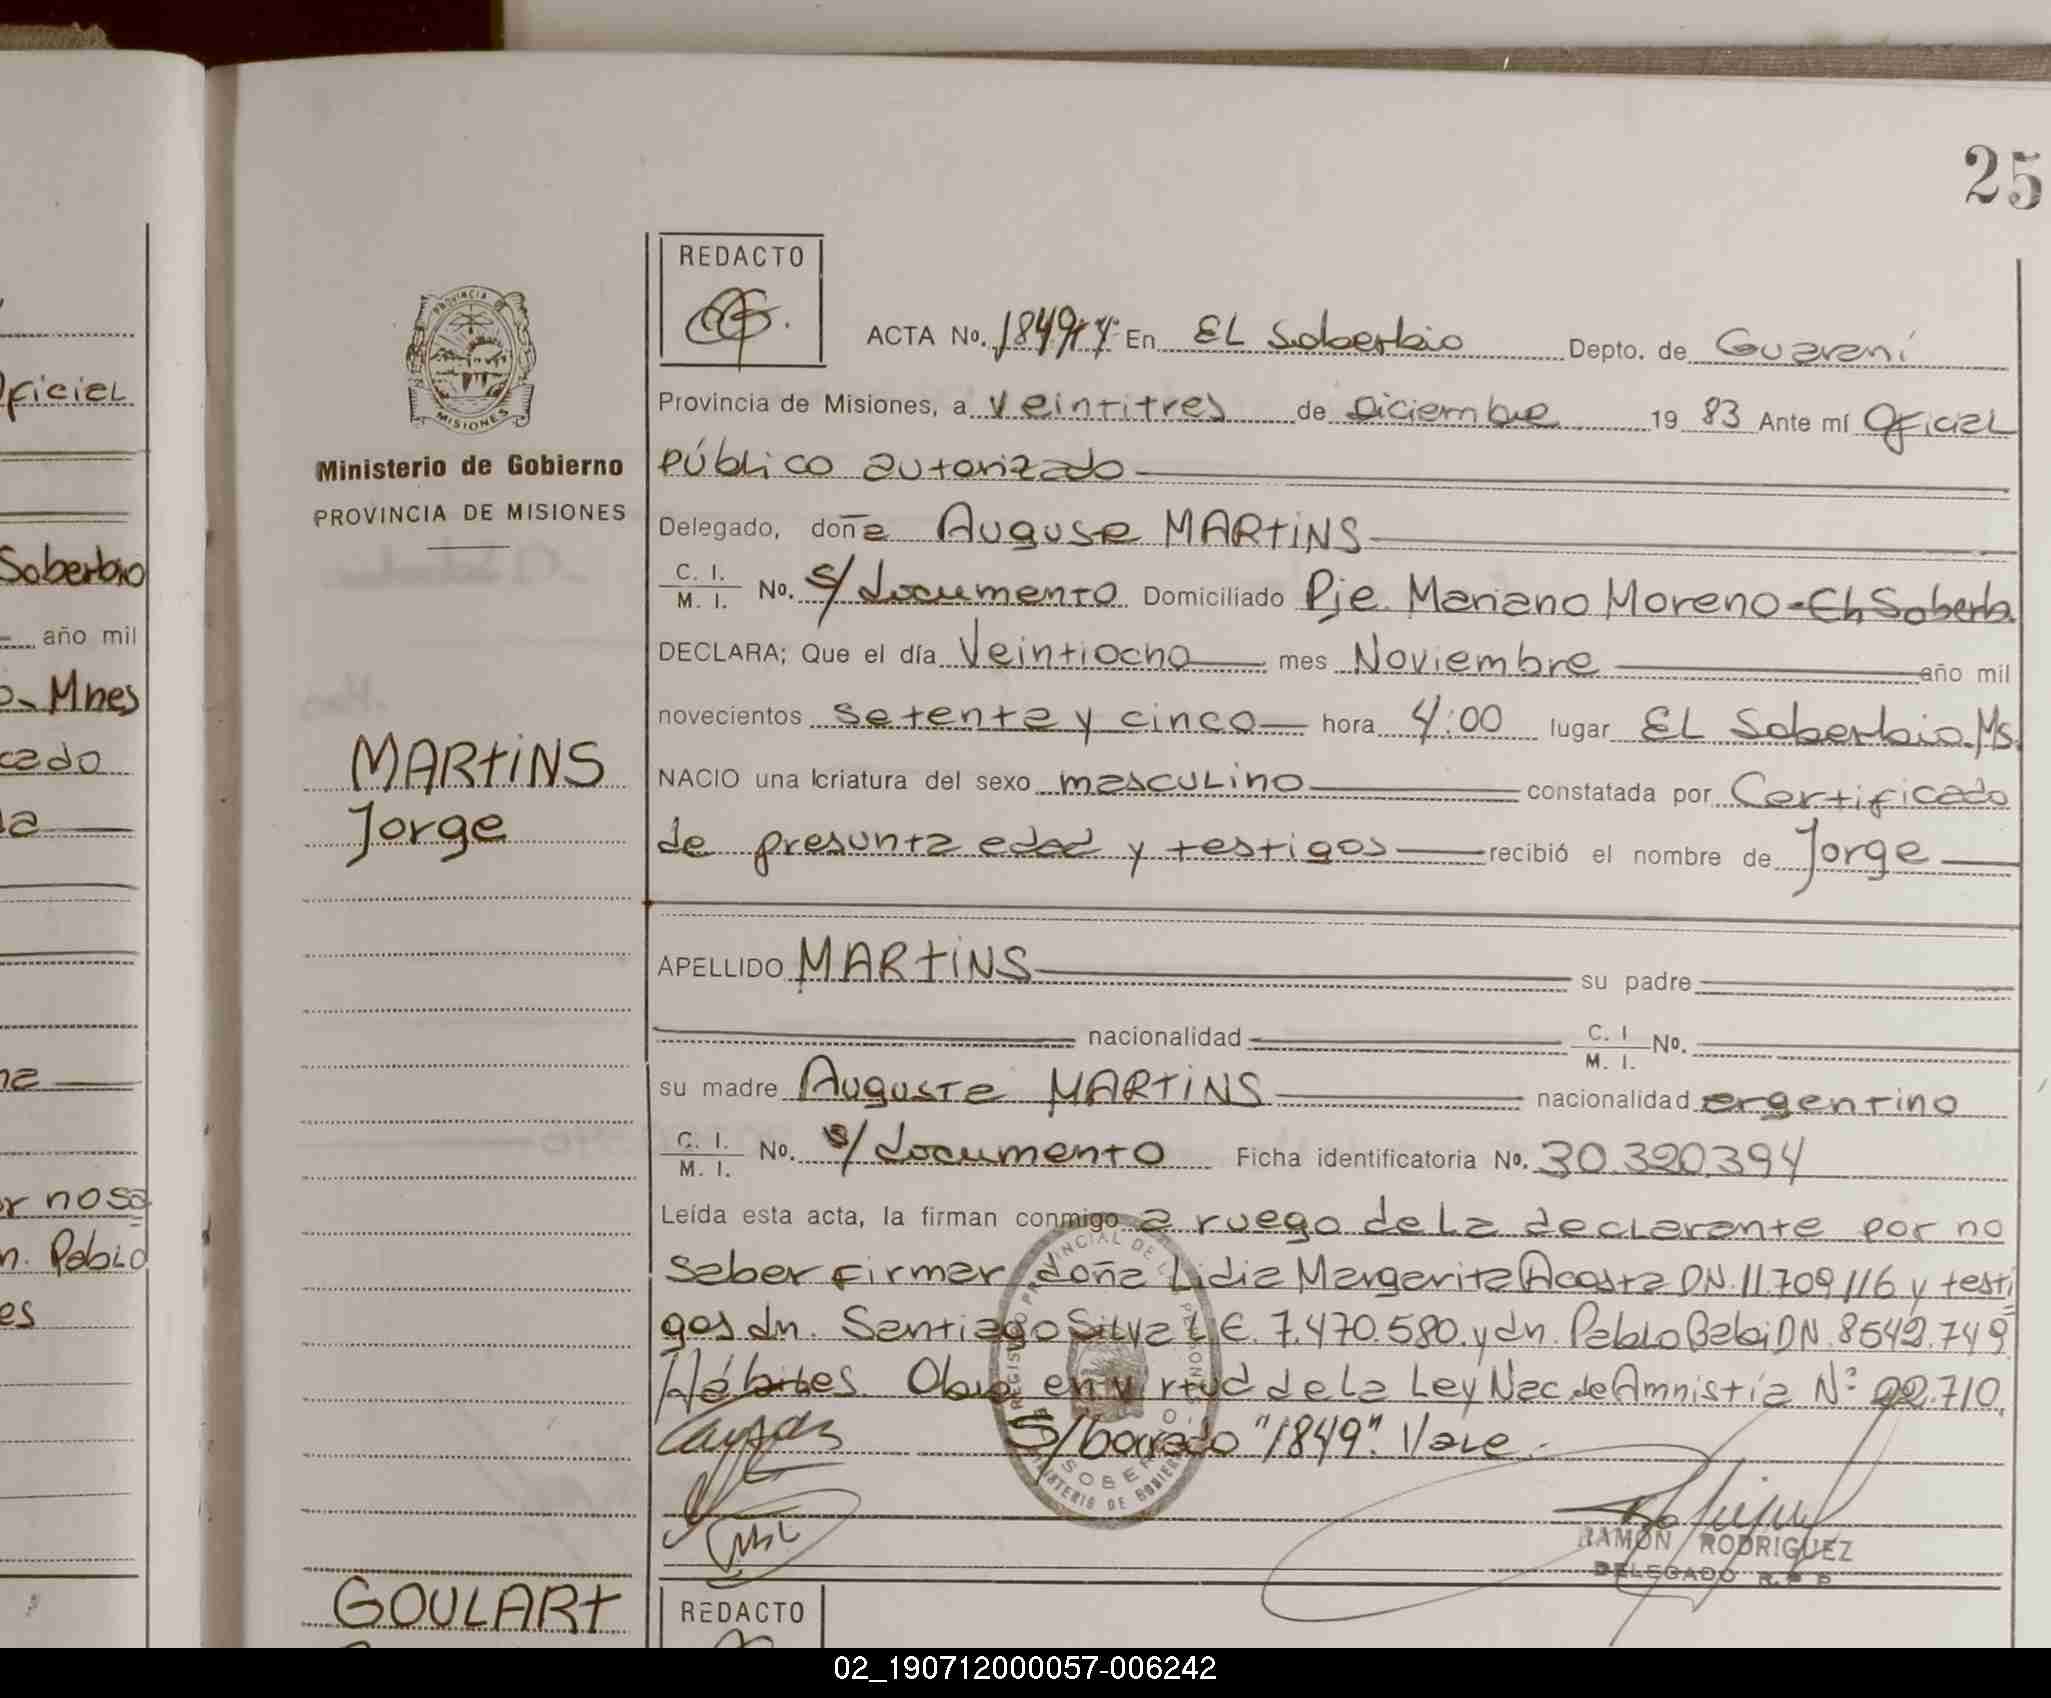 25
REDACTO
ACTA No. En EL Soberbio Depto. de Guaraní
Provincia de Misiones, a veintitres de Diciembre 19 83 Ante mí Oficial
público autorizado
Delegado, doña Auguse MARTINS
C. I. / M. I. No. s/documento Domiciliado Pje. Mariano Moreno-EL Soberb.
DECLARA; Que el día Veintiocho mes Noviembre año mil
novecientos setenta y cinco hora 4:00 lugar EL Soberbio.Ms.
NACIO una criatura del sexo masculino constatada por Certificado
de presunta edad y testigos recibió el nombre de Jorge
APELLIDO MARTINS su padre
nacionalidad C. I / M. I. No.
su madre Augusta MARTINS nacionalidad argentino
C. I. / M. I. No. s/documento Ficha identificatoria No. 30.320.394
Leída esta acta, la firman conmigo a ruego de La declarante por no
saber firmar doña Lidia Margarita Acosta DN.11.709.116 y testi
gos dn. Santiago Silva L.E. 7.470.580.y dn. Pablo DN.8542.749
Hábiles. Obra en virtud de La Ley Nac.de Amnistía Nº 22.710.
S/borrado "1849". Vale.
RAMON RODRIGUEZ
DELEGADO R. P. P
REDACTO
PROVINCIA DE
MISIONES
Ministerio de Gobierno
PROVINCIA DE MISIONES
MARTINS
Jorge
GOULART
REGISTRO PROVINCIAL DE PERSONAS
SOBERBIO
MINISTERIO DE GOBIERNO
Oficiel
Soberbio
año mil
Mnes
cado
r nosa
n. Pablo
es
02_190712000057-006242